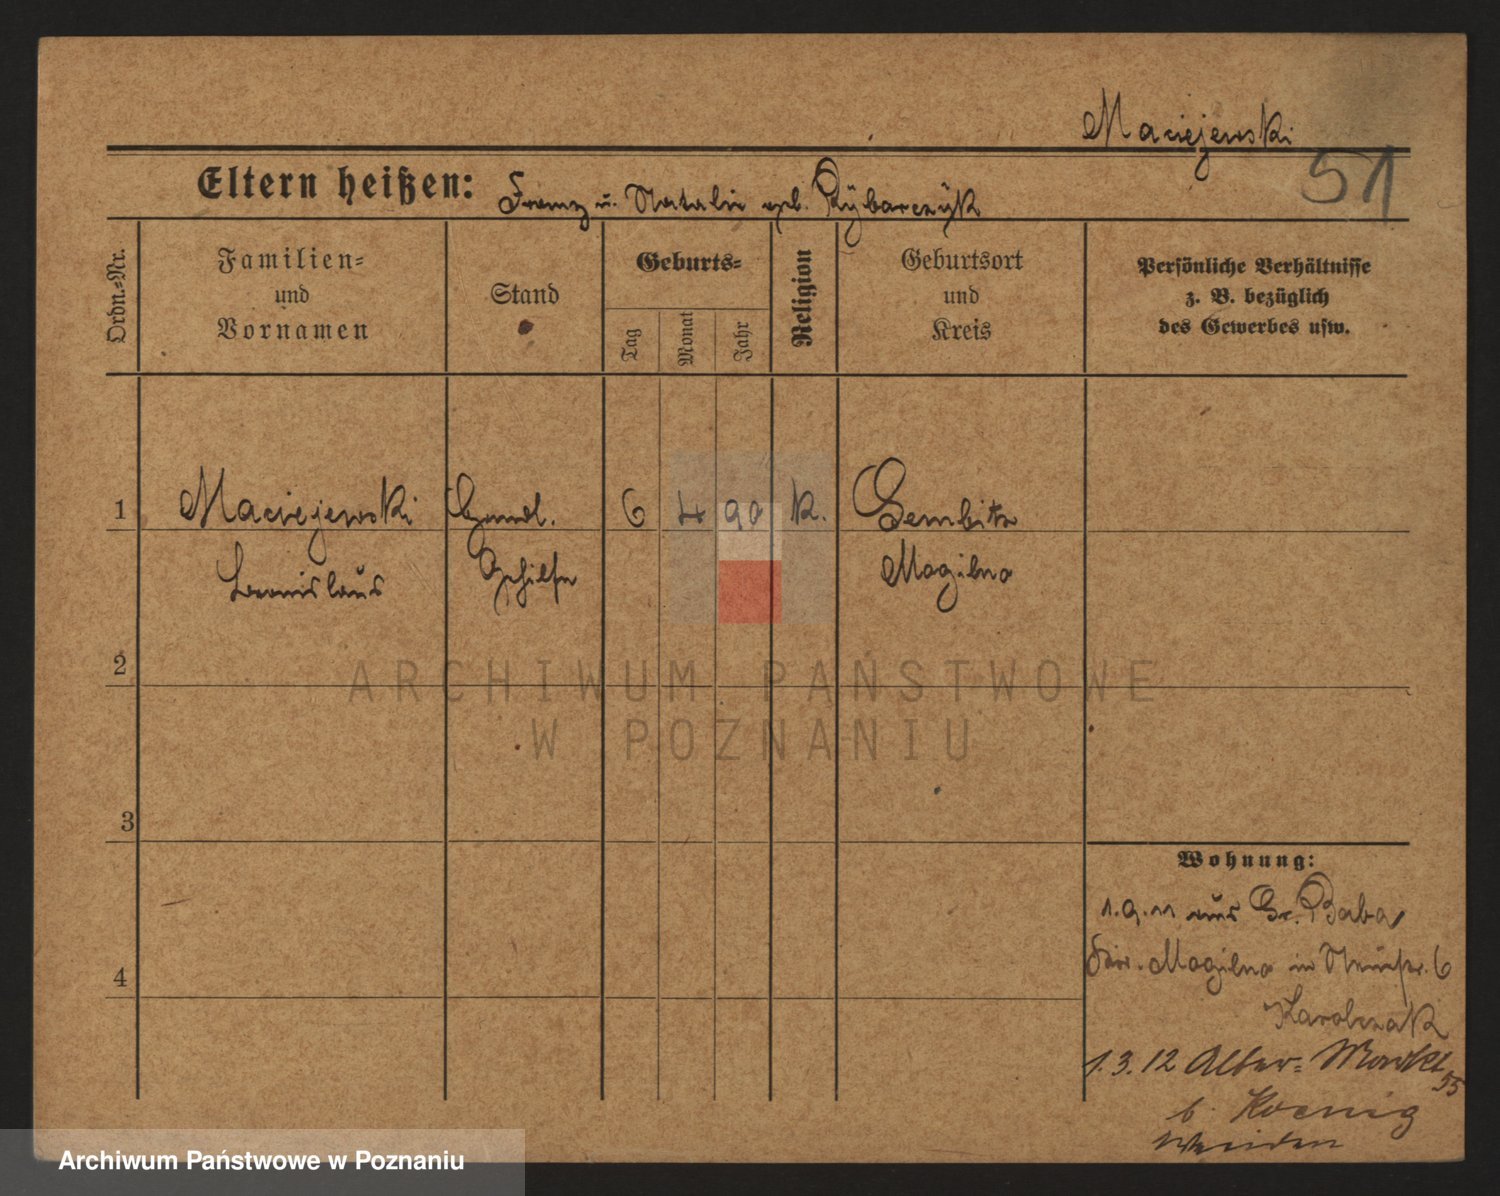 Maciejewski
51
Eltern heißen: Franz u. Natalie geb. Rybarczyk
Ordn.-Nr.
Familien-
und
Vornamen
Stand
Geburts-
Tag
Monat
Jahr
Religion
Geburtsort
und
Kreis
Persönliche Verhältnisse
z. B. bezüglich
des Gewerbes usw.
1 Maciejewski Handl. 6 4 90 k. Gembitz
Bronislaus Gehilfe Mogilno
2
3
4
Wohnung:
1.9.11 aus Gr. Baba
Mogilno in 6
Karolczak
1.3.12 Alter-Markt 55
b. Koenig
ARCHIWUM PAŃSTWOWE
W POZNANIU
Archiwum Państwowe w Poznaniu